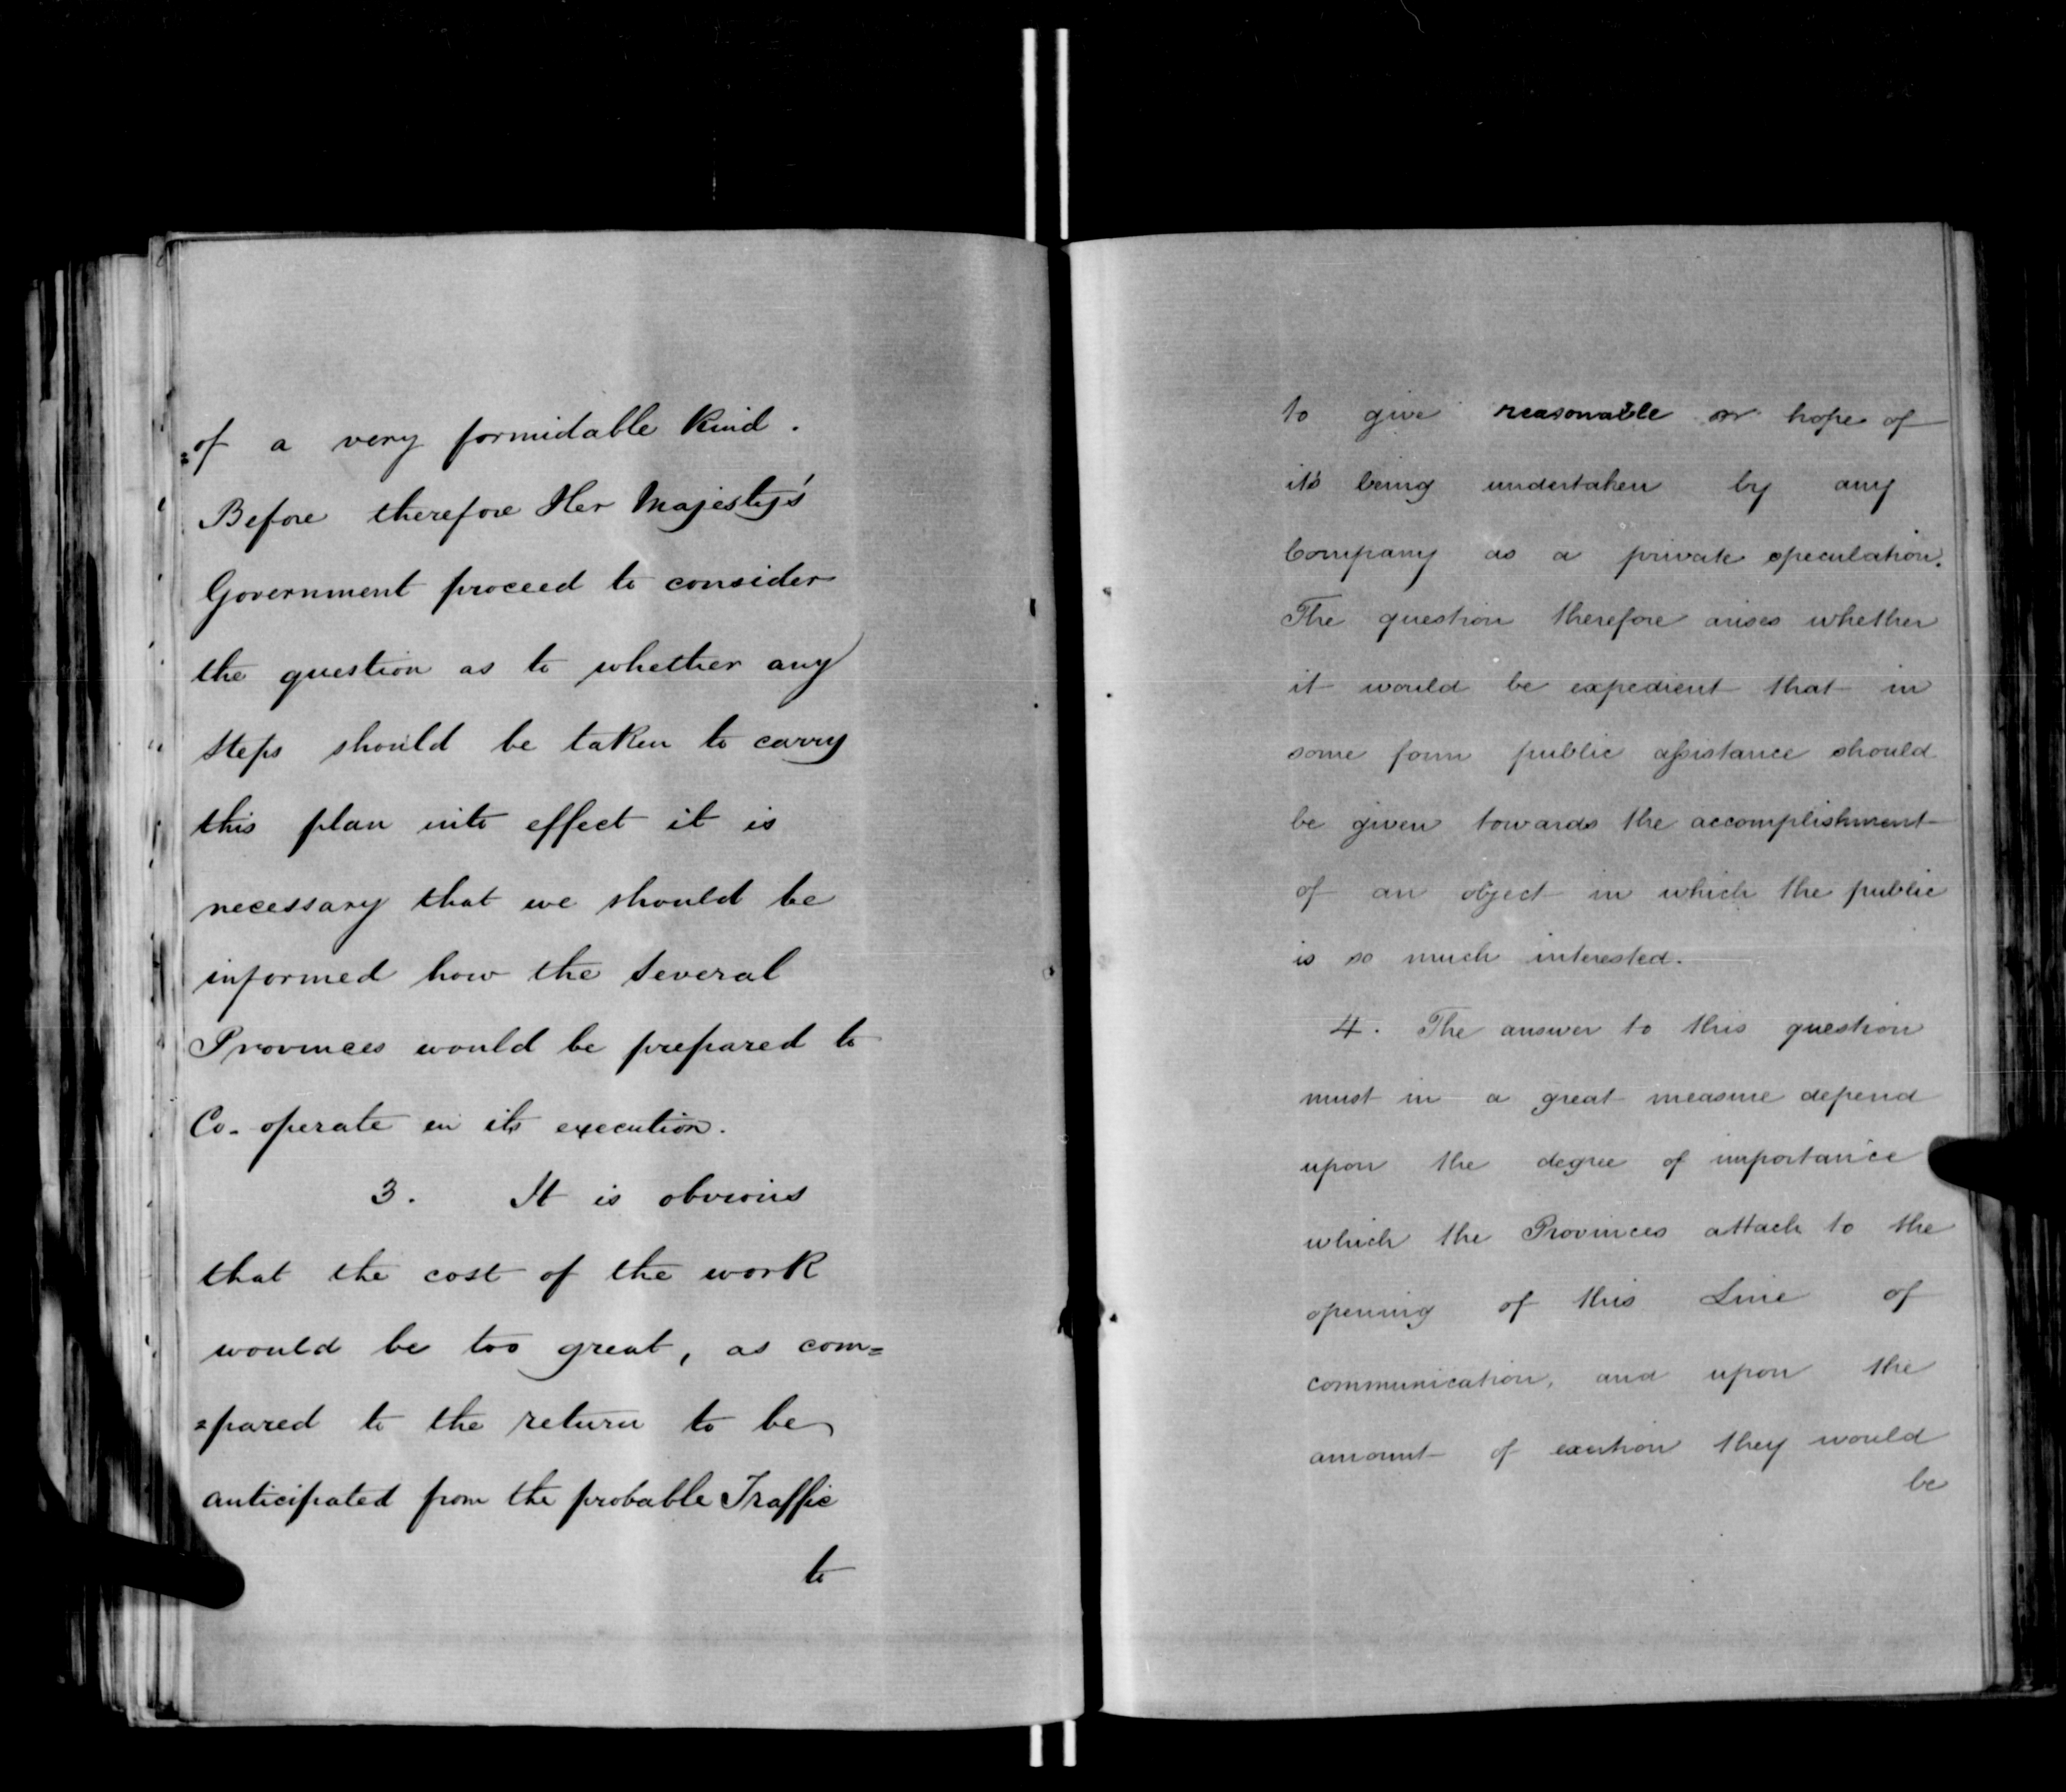 =of a very formidable Kind.
Before therefore Her Majesty's
Government proceed to consider
the question as to whether any
steps should be taken to carry
this plan into effect it is
necessary that we should be
informed how the several
Provinces would be prepared to
Co-operate in its execution.
3. It is obvious
that the cost of the work
would be too great, as com=
=pared to the return to be
anticipated from the probable Traffic
to
to give reasonable hope of
it's being undertaken by any
Company as a private speculation.
The question therefore arises whether
it would be expedient that in
some form public assistance should
be given towards the accomplishment
of an object in which the public
is so much interested.
4. The answer to this question
must in a great measure depend
upon the degree of importance
which the Provinces attach to the
opening of this Line of
communication, and upon the
amount of exertion they would
be